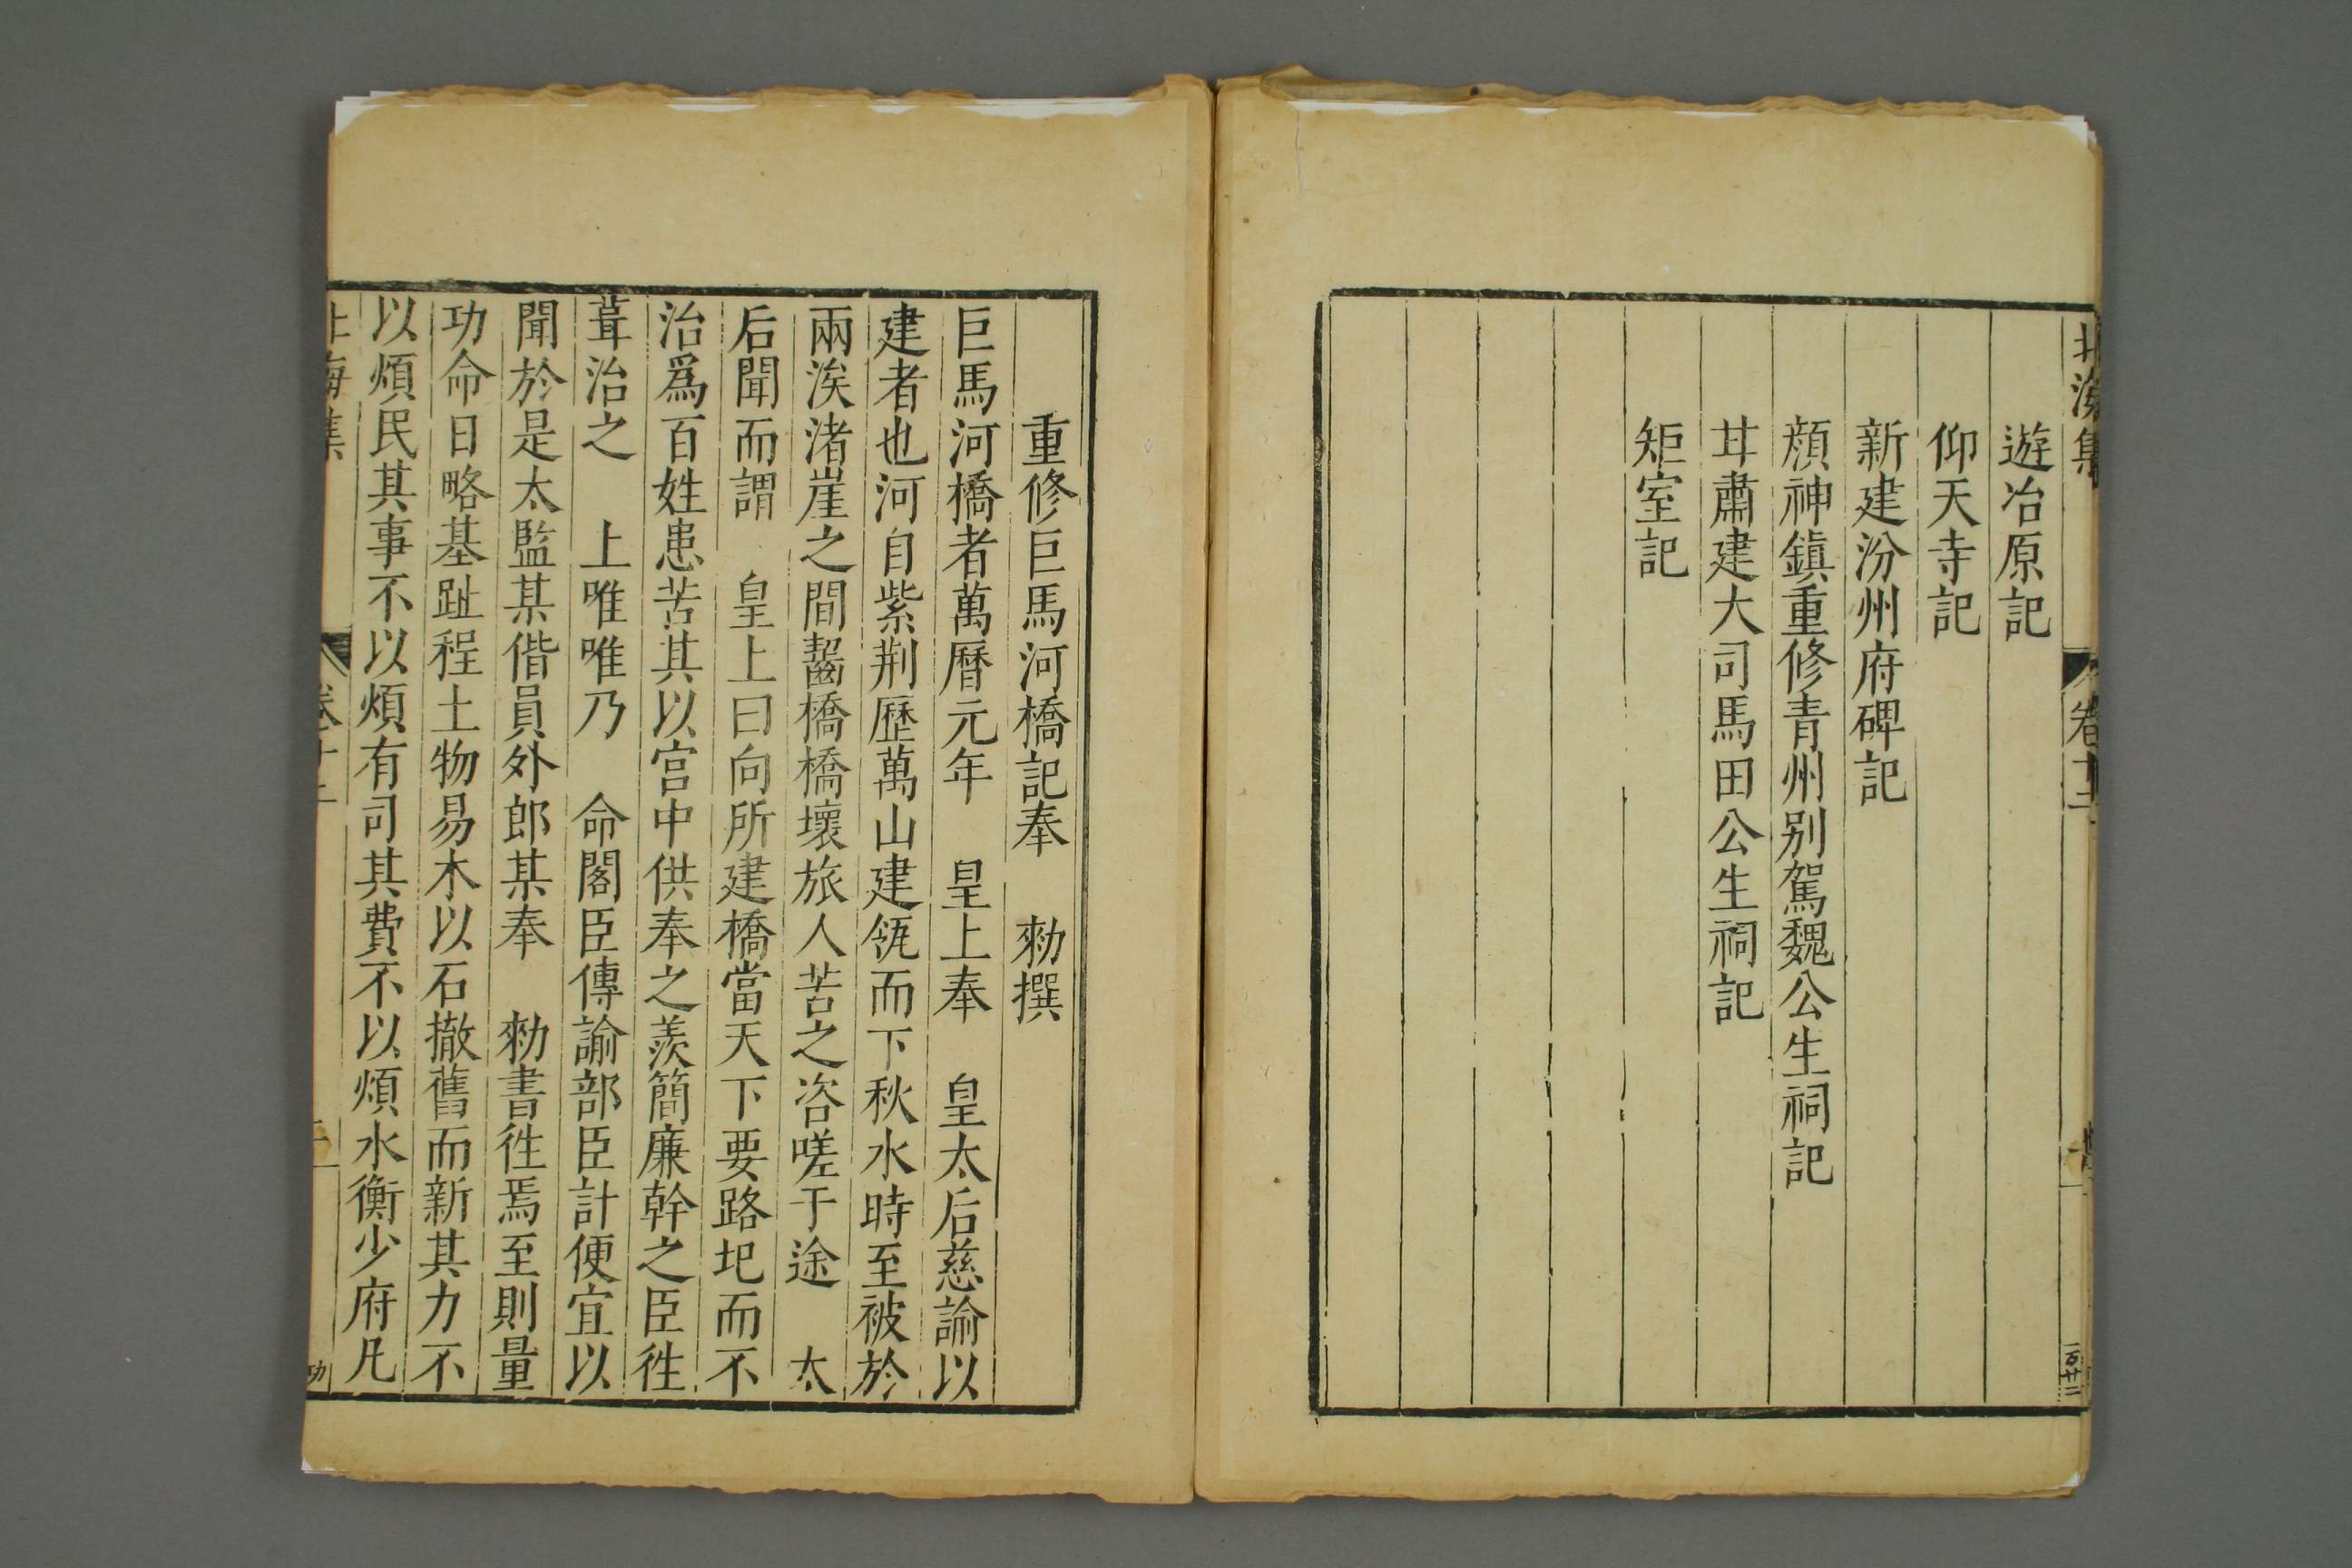 北海集 卷十二
遊冶原記
仰天寺記
新建汾州府碑記
顔神鎮重修青州别駕魏公生祠記
甘肅建大司馬田公生祠記
矩室記
重修巨馬河橋記奉 勑撰
巨馬河橋者萬曆元年 皇上奉 皇太后慈諭以
建者也河自紫荆歷萬山建瓴而下秋水時至被於
兩涘渚崖之間齧橋橋壞旅人苦之咨嗟于途 太
后聞而謂 皇上曰向所建橋當天下要路圯而不
治爲百姓患苦其以宫中供奉之羡簡廉幹之臣徃
葺治之 上唯唯乃 命閣臣傳諭部臣計便宜以
聞於是太監某偕員外郎某奉 勑書徃焉至則量
功命日略基趾程土物易木以石撤舊而新其力不
以煩民其事不以煩有司其費不以煩水衡少府凡
北海集 卷十二 功